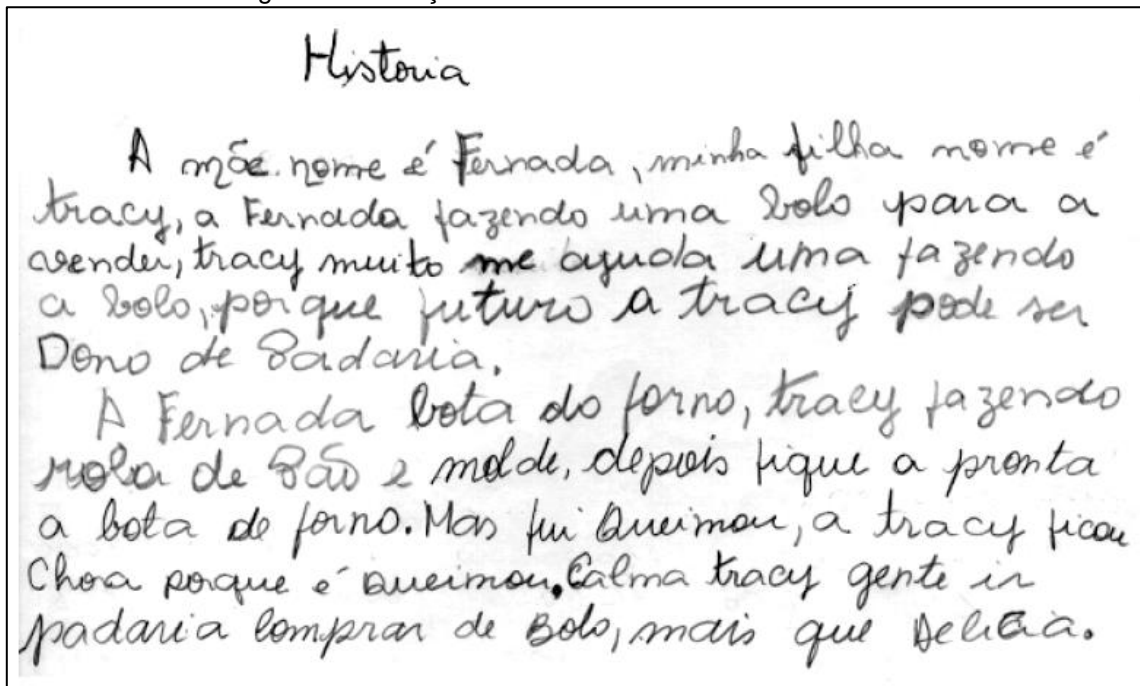 Historia
A mãe nome é Fernada, minha filha nome é
tracy, a Fernada fazendo uma bolo para a
vender, tracy muito me ajuda uma fazendo
a bolo, porque futuro a tracy pode ser
Dono de Padaria.
A Fernada bota do forno, tracy fazendo
de Pão e molde, depois fique a pronta
a bota de forno. Mas fui Queimou, a tracy ficou
Chora porque é Queimou. Calma tracy gente ir
padaria Comprar de Bolo, mais que Delicia.